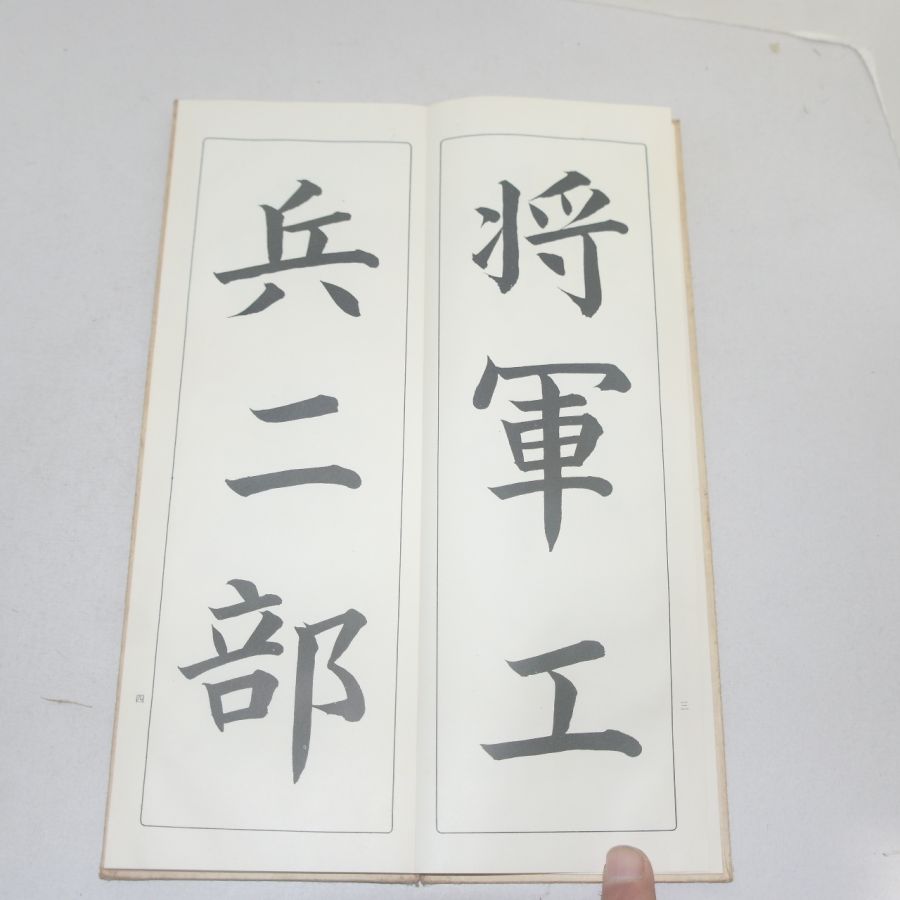 将軍工
三
兵二部
四